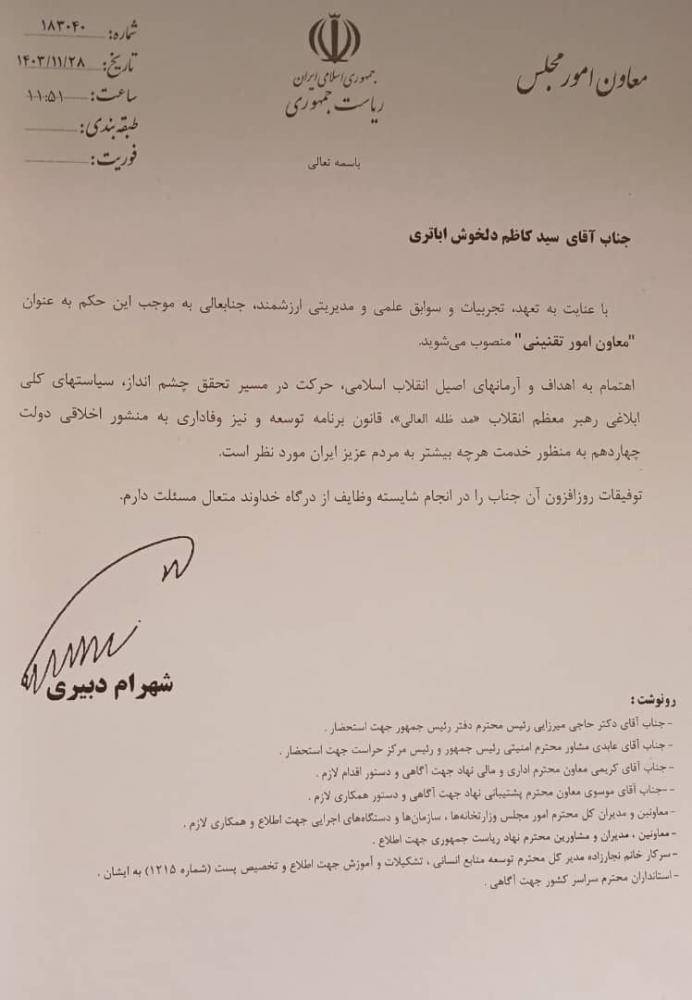 معاون امور مجلس
جمهوری اسلامی ایران
ریاست جمهوری
شماره: ۱۸۳۰۴۰
تاریخ: ۱۴۰۳/۱۱/۲۸
ساعت: ۱۱:۵۱
طبقه‌بندی:
فوریت:
باسمه تعالی
جناب آقای سید کاظم دلخوش اباتری
با عنایت به تعهد، تجربیات و سوابق علمی و مدیریتی ارزشمند، جنابعالی به موجب این حکم به عنوان
"معاون امور تقنینی" منصوب می‌شوید.
اهتمام به اهداف و آرمانهای اصیل انقلاب اسلامی، حرکت در مسیر تحقق چشم انداز، سیاستهای کلی
ابلاغی رهبر معظم انقلاب «مد ظله العالی»، قانون برنامه توسعه و نیز وفاداری به منشور اخلاقی دولت
چهاردهم به منظور خدمت هرچه بیشتر به مردم عزیز ایران مورد نظر است.
توفیقات روزافزون آن جناب را در انجام شایسته وظایف از درگاه خداوند متعال مسئلت دارم.
شهرام دبیری
رونوشت:
-جناب آقای دکتر حاجی میرزایی رئیس محترم دفتر رئیس جمهور جهت استحضار .
-جناب آقای عابدی مشاور محترم امنیتی رئیس جمهور و رئیس مرکز حراست جهت استحضار .
-جناب آقای کریمی معاون محترم اداری و مالی نهاد جهت آگاهی و دستور اقدام لازم .
--جناب آقای موسوی معاون محترم پشتیبانی نهاد جهت آگاهی و دستور همکاری لازم .
-معاونین و مدیران کل محترم امور مجلس وزارتخانه‌ها ، سازمان‌ها و دستگاه‌های اجرایی جهت اطلاع و همکاری لازم .
-معاونین ، مدیران و مشاورین محترم نهاد ریاست جمهوری جهت اطلاع .
-سرکار خانم نجارزاده مدیر کل محترم توسعه منابع انسانی ، تشکیلات و آموزش جهت اطلاع و تخصیص پست (شماره ۱۲۱۵) به ایشان .
-استانداران محترم سراسر کشور جهت آگاهی .